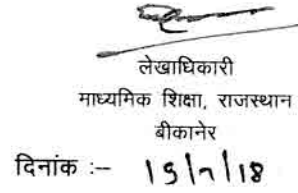 लेखाधिकारी
माध्यमिक शिक्षा, राजस्थान
बीकानेर
दिनांक :–